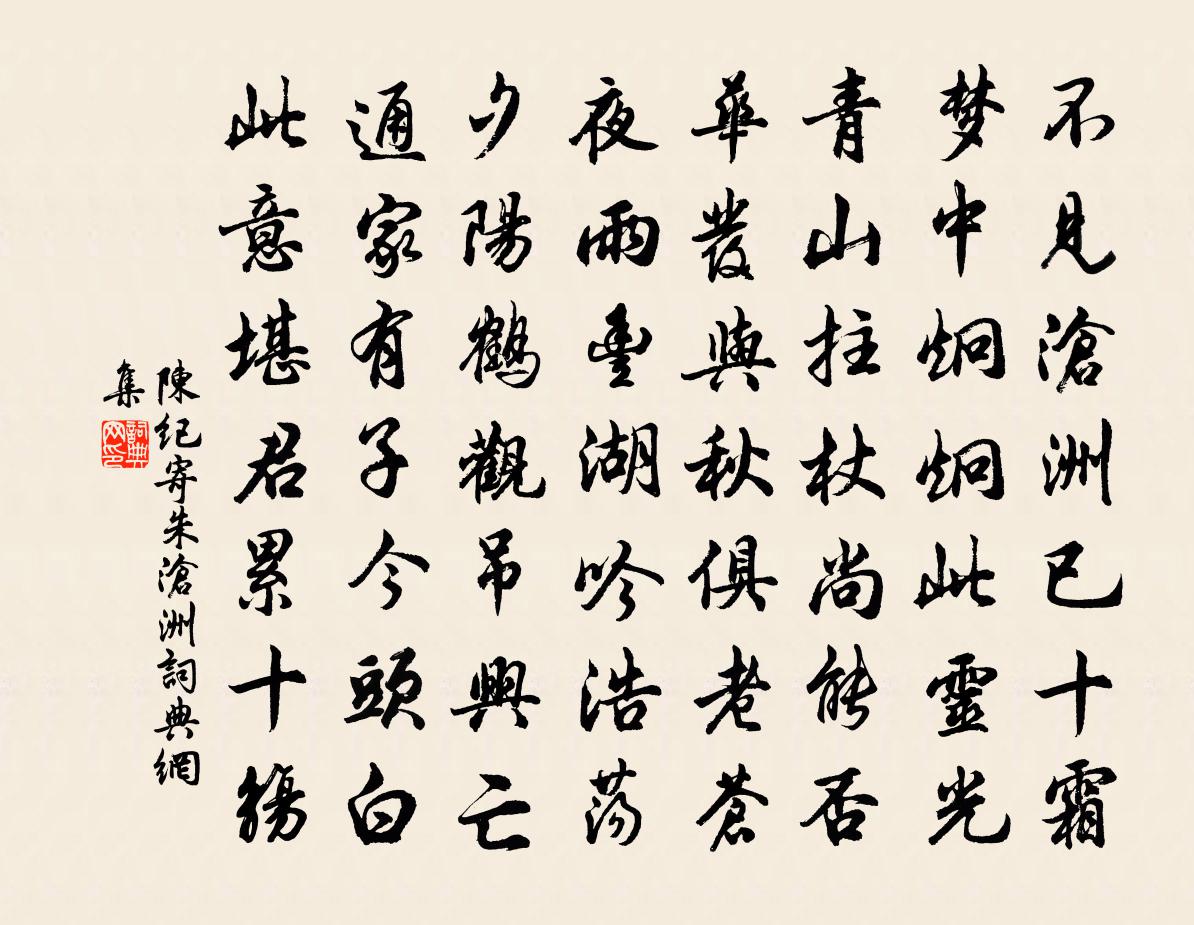 不見滄洲已十霜
梦中炯炯此靈光
青山拄杖尚能否
華發與秋俱老蒼
夜雨豊湖吟浩荡
夕陽鶴觀吊興亡
通家有子今頭白
此意堪君累十觴
陳紀寄朱滄洲詞典網
集
詞典
网印